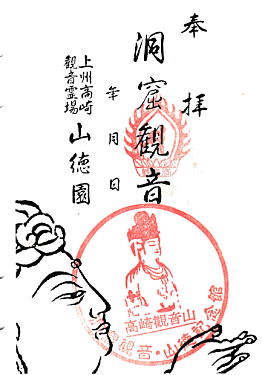 奉拝
洞窟観音
年月日
上州高崎
観音霊場
山徳園
高崎観音山
観音・山徳記念館